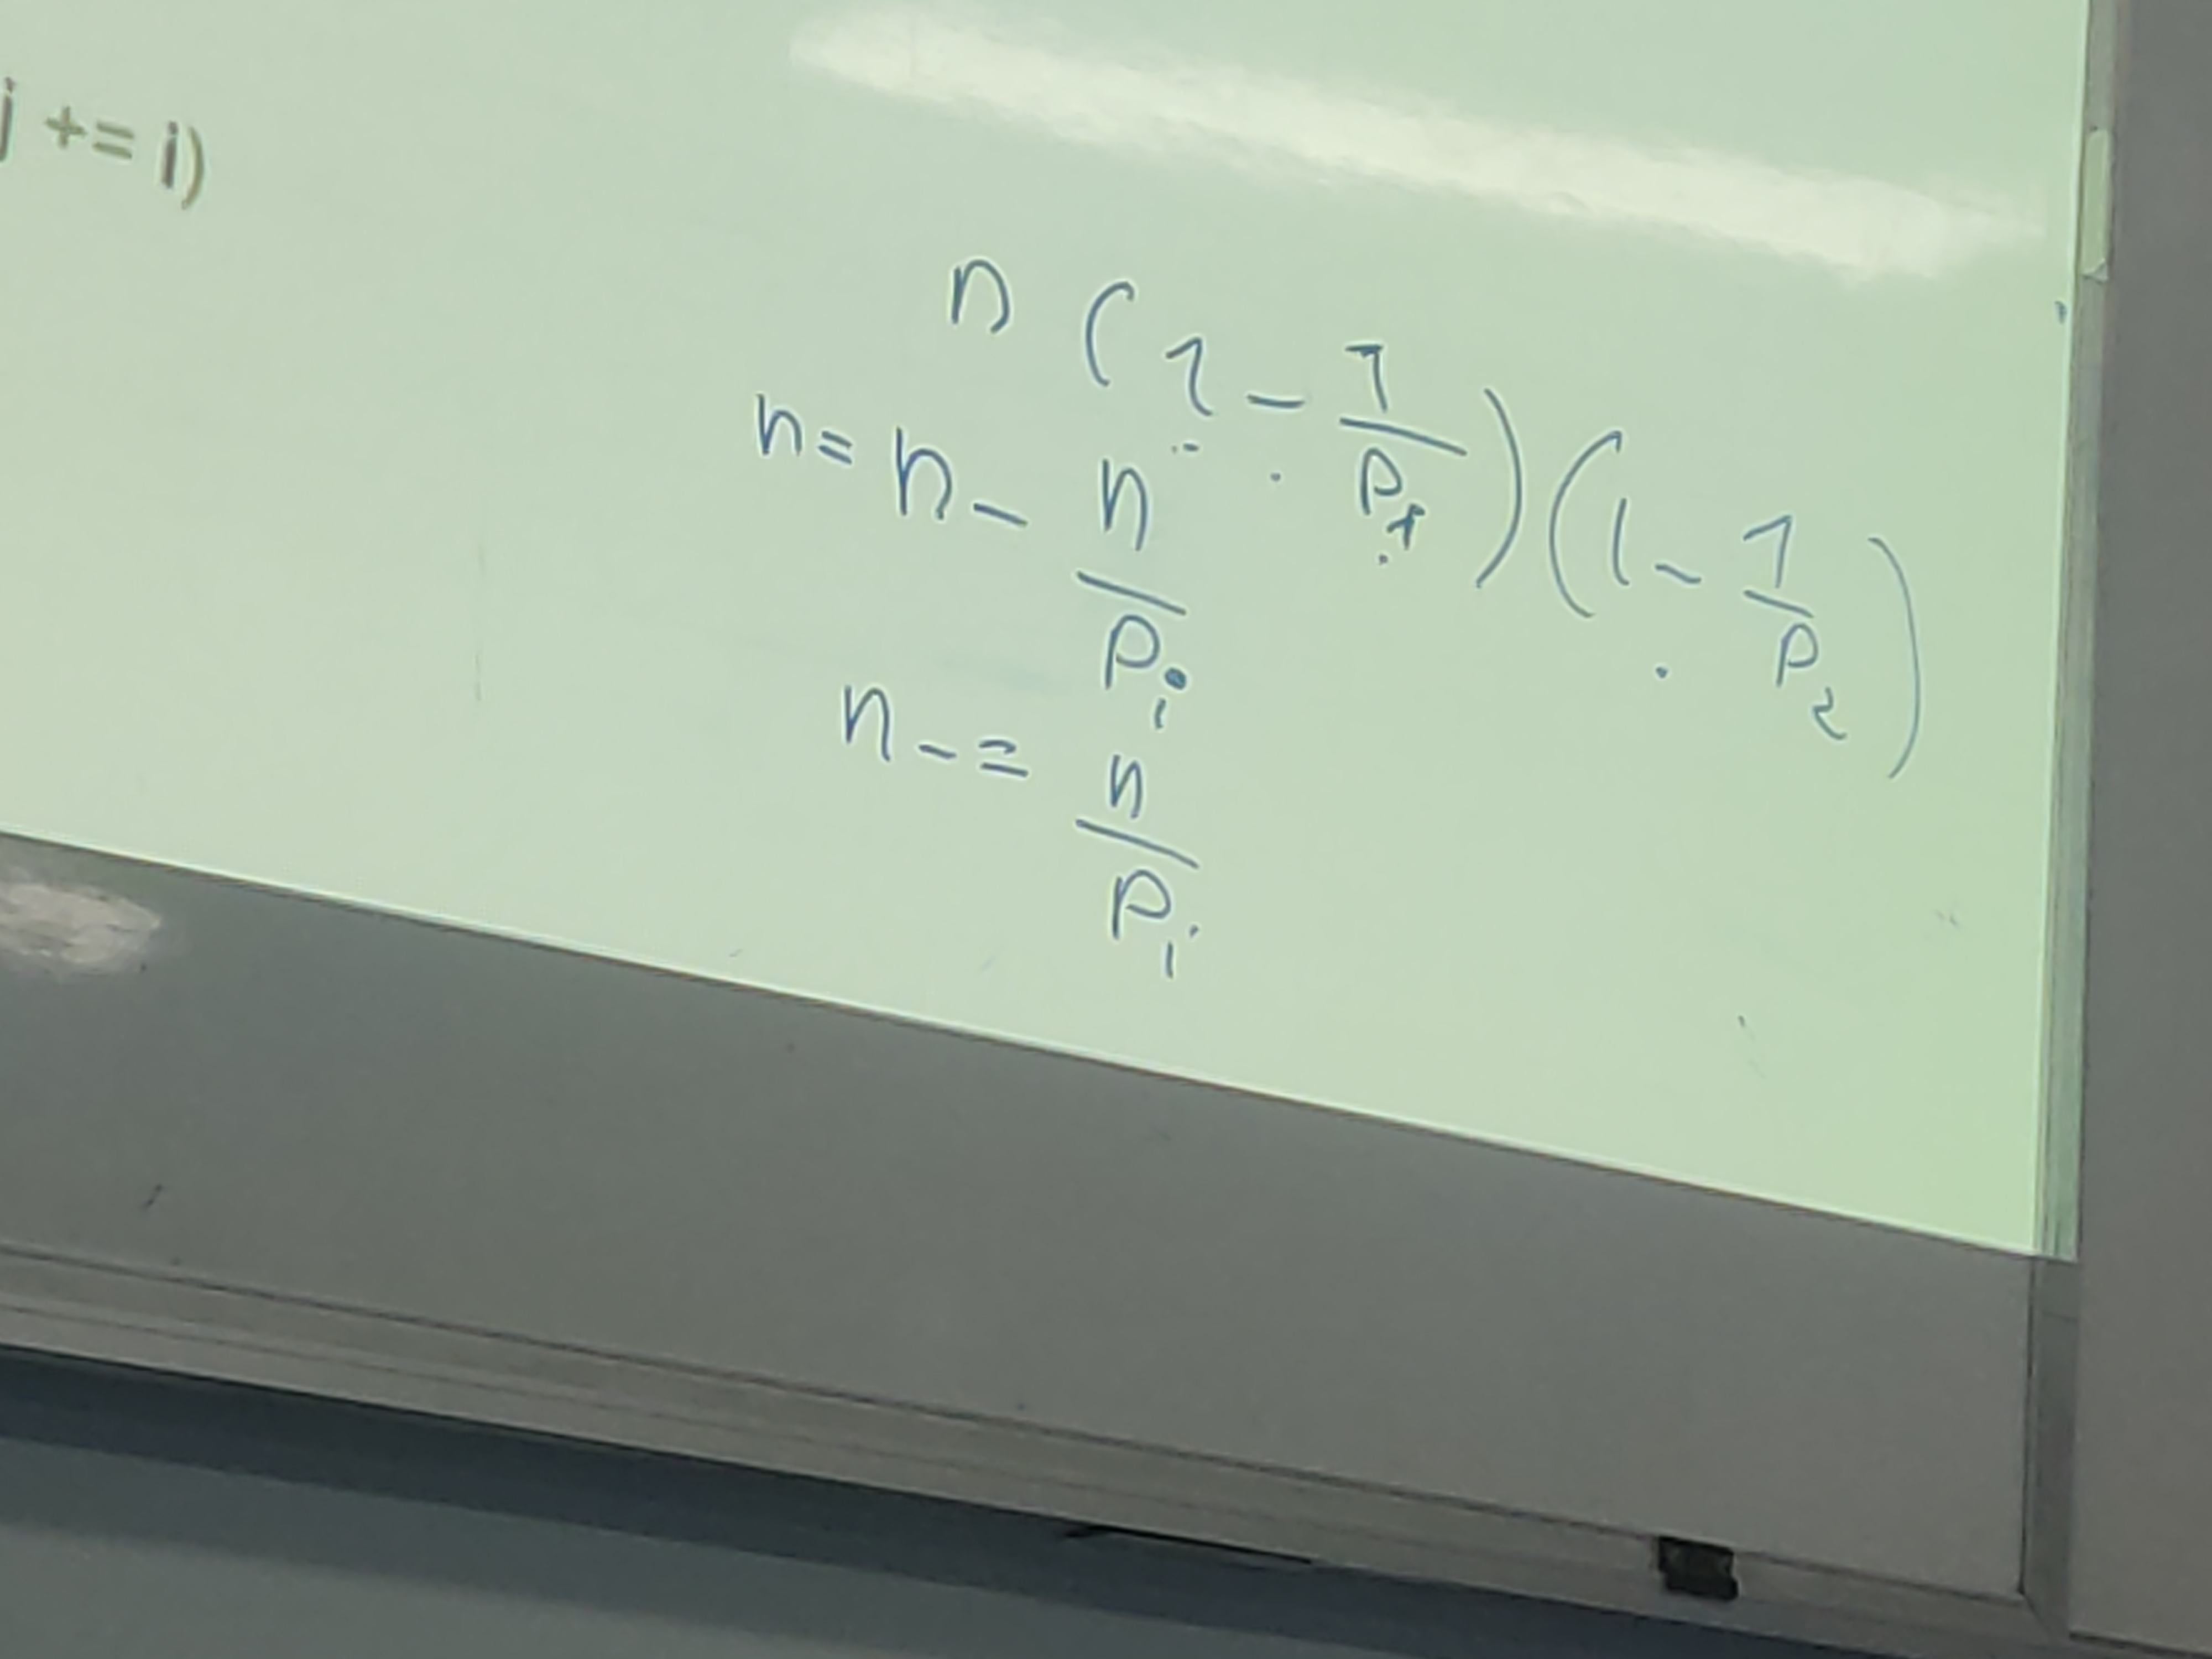 j += i)
n (1 - 1/P₁)(1 - 1/P₂)
n = n - n/Pᵢ
n -= n/Pᵢ